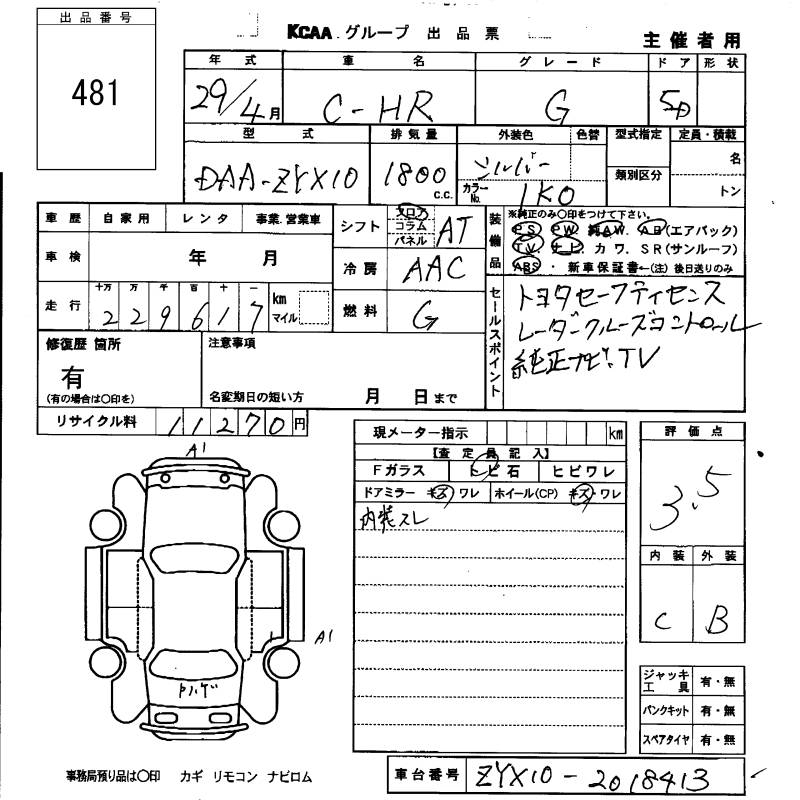 出品番号
481
KCAA グループ 出品票
主催者用
年式 車名 グレード ドア 形状
29/4月 C-HR G 5D
型式 排気量 外装色 色替 型式指定 定員・積載
DAA-ZYX10 1800 c.c. シルバー 類別区分 名
カラーNo. 1K0 トン
車歴 自家用 レンタ 事業.営業車
シフト フロア コラム パネル AT
装備品 ※純正のみ○印をつけて下さい。
PS PW 純AW. AB(エアバック)
TV ナビ カワ.SR(サンルーフ)
ABS ・ 新車保証書←(注)後日送りのみ
車検 年 月
冷房 AAC
走行 十万 万 千 百 十 一
229617 km マイル
燃料 G
セールスポイント
トヨタセーフティセンス
レーダークルーズコントロール
純正ナビ.TV
修復歴 箇所
有
(有の場合は○印を)
注意事項
名変期日の短い方 月 日まで
リサイクル料 11270円
現メーター指示 km
【査定員記入】
Fガラス トビ石 ヒビワレ
ドアミラー キズ・ワレ ホイール(CP) キズ・ワレ
内装スレ
評価点
3.5
内装 外装
C B
A1
A1
ジャッキ工具 有・無
パンクキット 有・無
スペアタイヤ 有・無
事務局預り品は○印 カギ リモコン ナビロム
車台番号 ZYX10-2018413